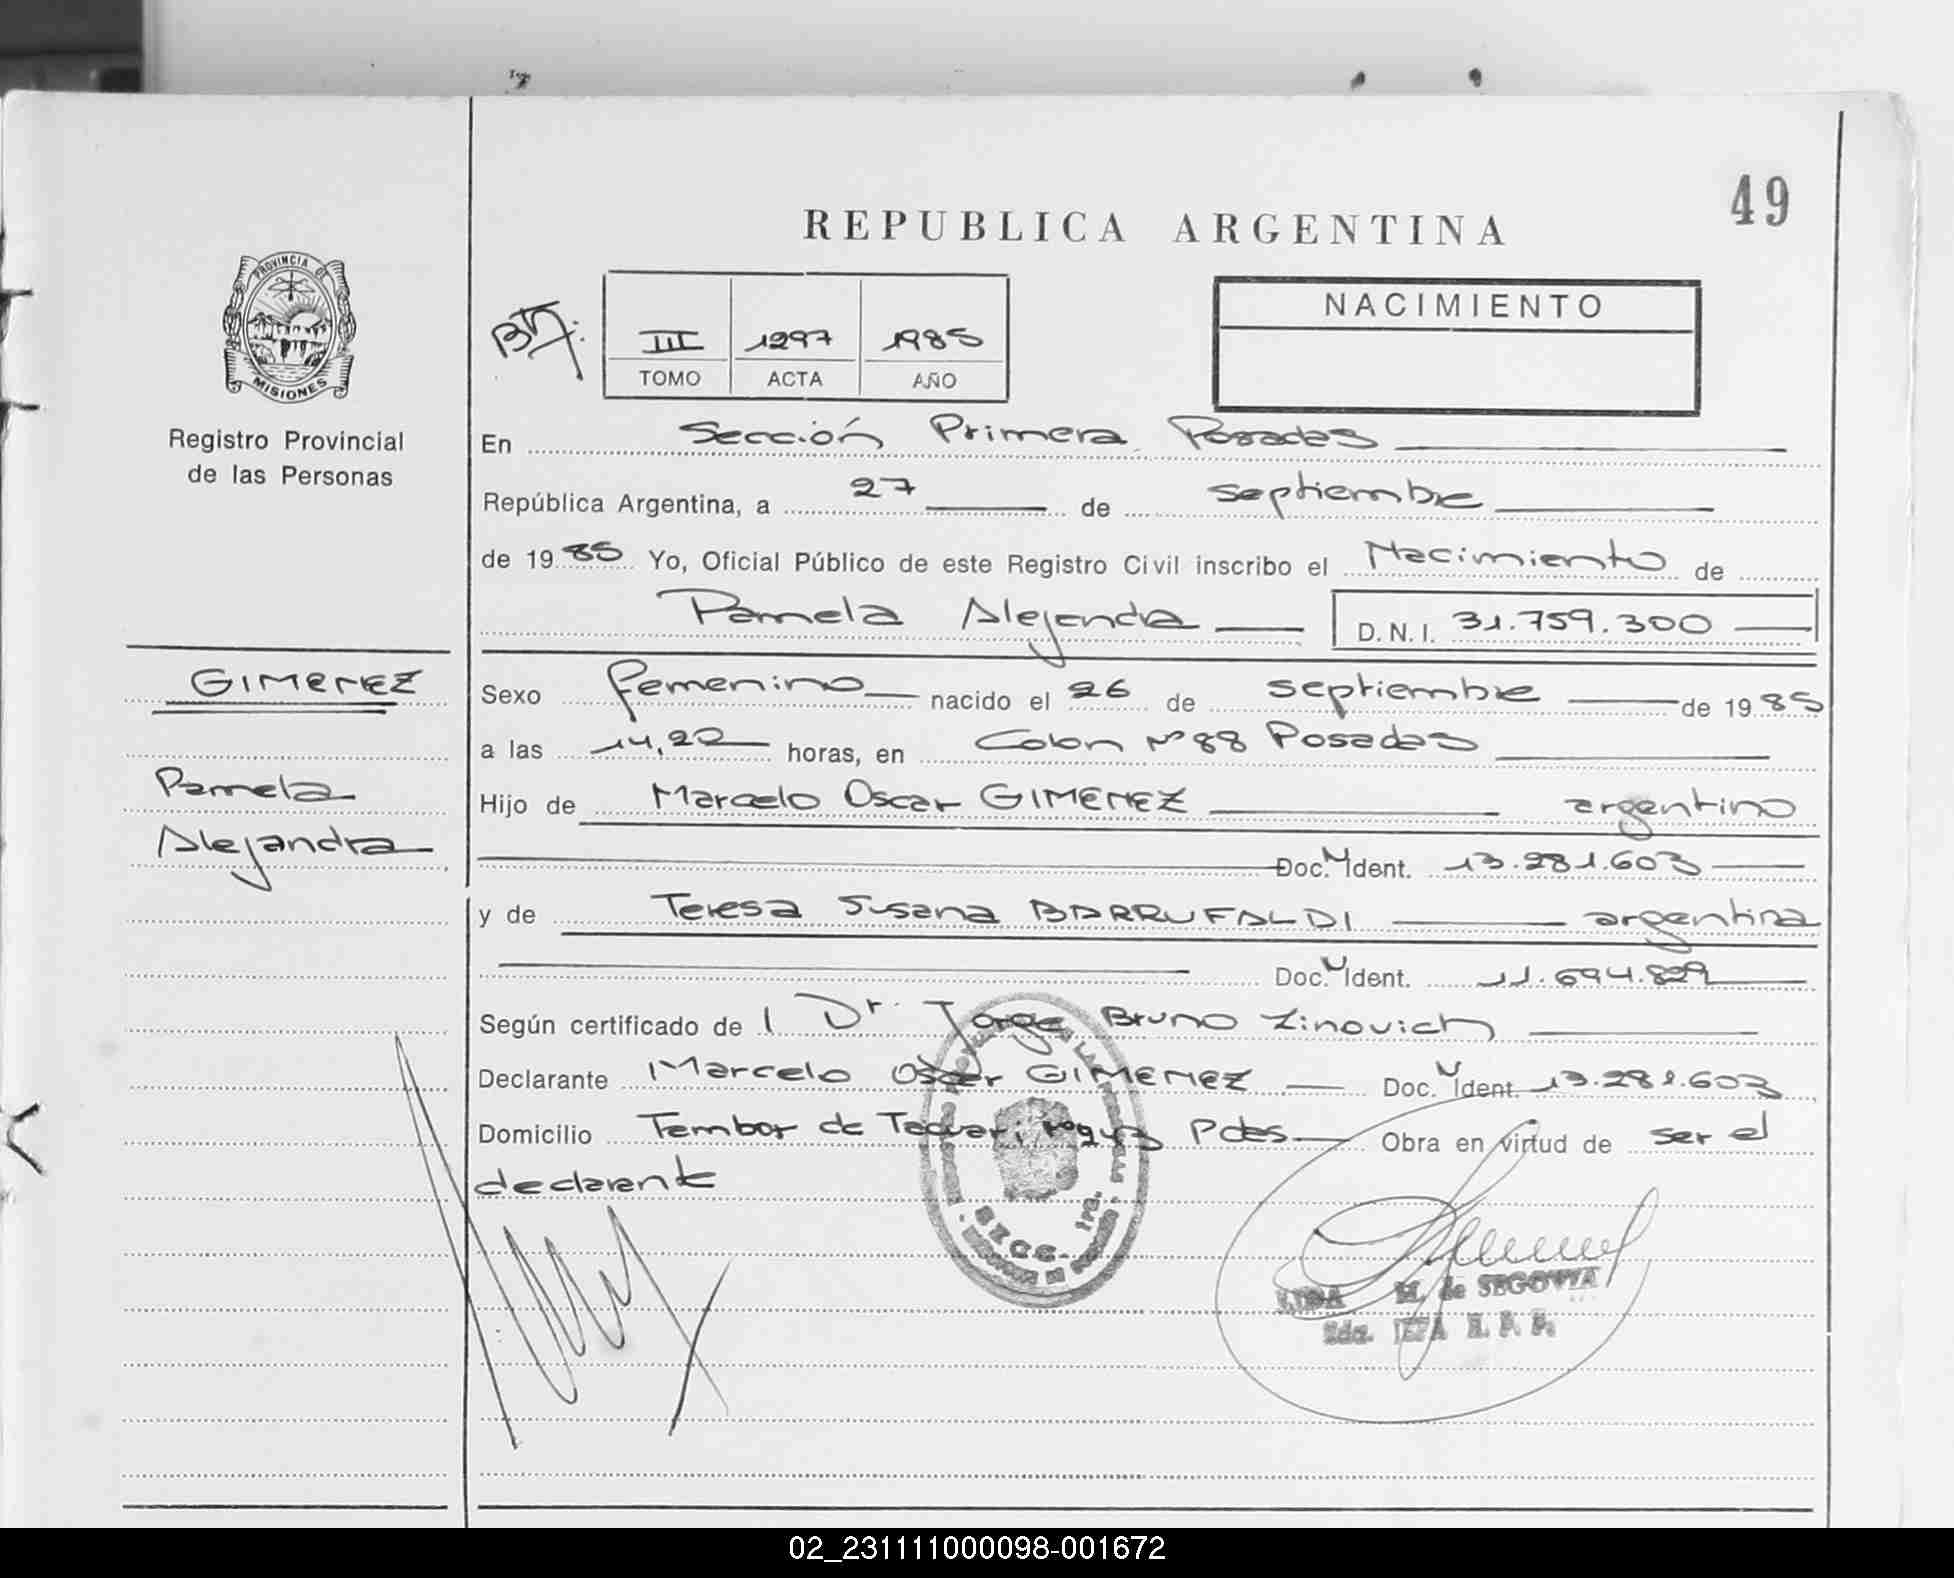 49
REPUBLICA ARGENTINA
PROVINCIA DE
MISIONES
Registro Provincial
de las Personas
III 1297 1985
TOMO ACTA AÑO
NACIMIENTO
En Sección Primera Posadas
República Argentina, a 27 de septiembre
de 1985 Yo, Oficial Público de este Registro Civil inscribo el Nacimiento de
Pamela Alejandra D.N.I. 31.759.300
GIMENEZ
Pamela
Alejandra
Sexo femenino nacido el 26 de septiembre de 1985
a las 14,20 horas, en Colon Nº 88 Posadas
Hijo de Marcelo Oscar GIMENEZ argentino
Doc. Ident. 13.281.603
y de Teresa Susana BARRUFALDI argentina
Doc. Ident. 11.694.829
Según certificado de l Dr. Jorge Bruno Zinovich
Declarante Marcelo Oscar GIMENEZ Doc. Ident. 13.281.603
Domicilio Tambor de Tacuari Pdas Obra en virtud de ser el
declarante
SECC. 1ra.
LIDA M. de SEGOVIA
2da. JEFA R. P. P.
02_231111000098-001672